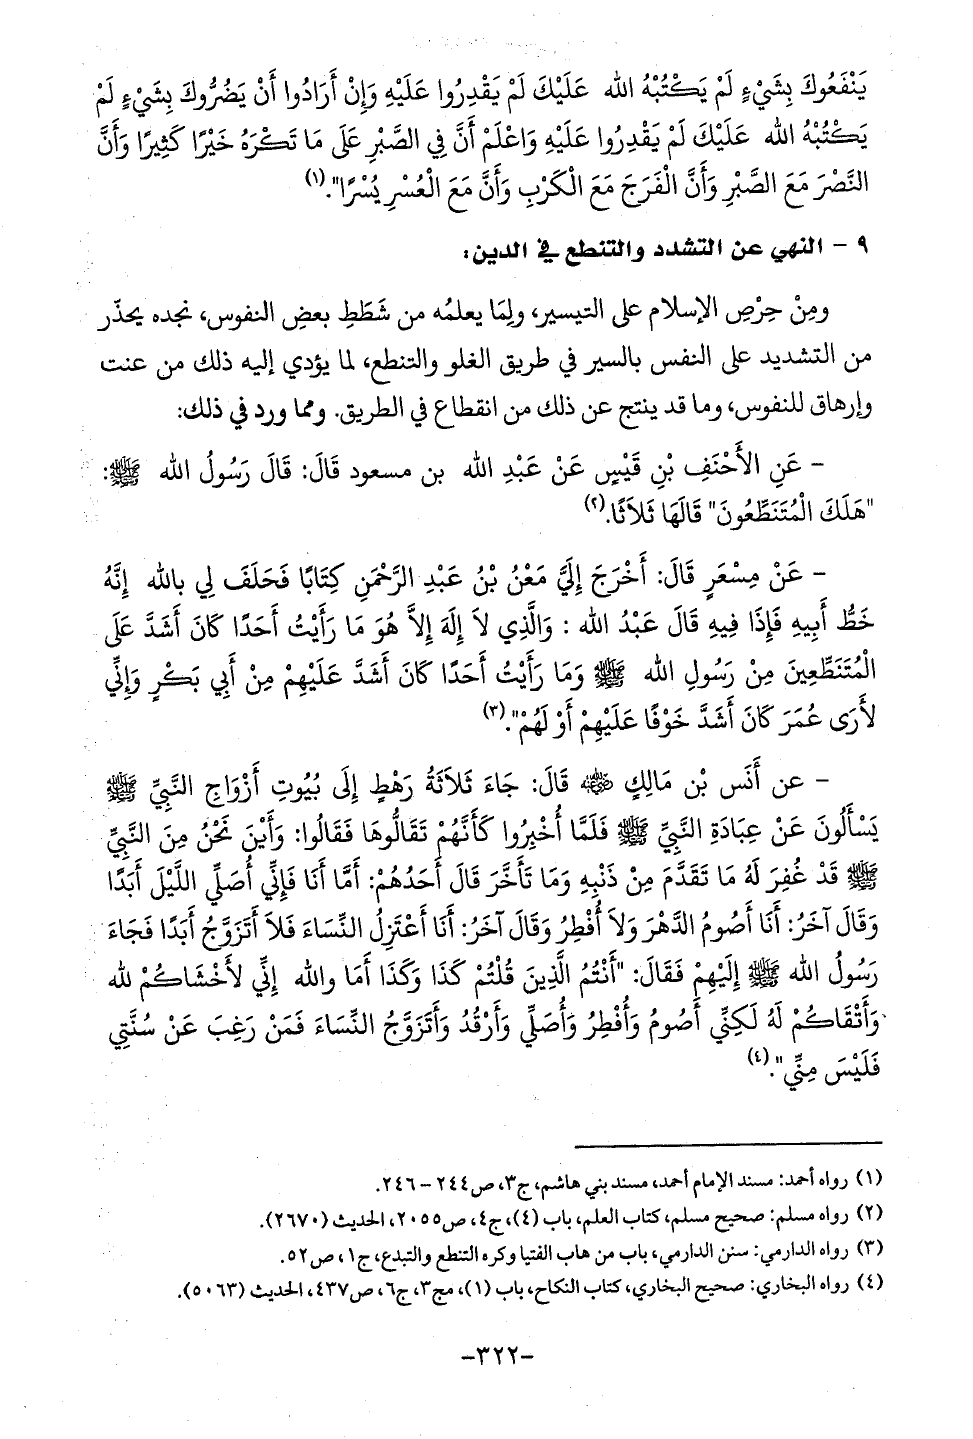 يَنْفَعُوكَ بِشَيْءٍ لَمْ يَكْتُبْهُ الله عَلَيْكَ لَمْ يَقْدِرُوا عَلَيْهِ وَإِنْ أَرَادُوا أَنْ يَضُرُّوكَ بِشَيْءٍ لَمْ
يَكْتُبْهُ الله عَلَيْكَ لَمْ يَقْدِرُوا عَلَيْهِ وَاعْلَمْ أَنَّ فِي الصَّبْرِ عَلَى مَا تَكْرَهُ خَيْرًا كَثِيرًا وَأَنَّ
النَّصْرَ مَعَ الصَّبْرِ وَأَنَّ الْفَرَجَ مَعَ الْكَرْبِ وَأَنَّ مَعَ الْعُسْرِ يُسْرًا".(١)
٩ - النهي عن التشدد والتنطع في الدين:
ومِنْ حِرْصِ الإسلام على التيسير، ولِمَا يعلمُه من شَطَطِ بعضِ النفوس، نجده يحذّر
من التشديد على النفس بالسير في طريق الغلو والتنطع، لما يؤدي إليه ذلك من عنت
وإرهاق للنفوس، وما قد ينتج عن ذلك من انقطاع في الطريق. ومما ورد في ذلك:
- عَنِ الأَحْنَفِ بْنِ قَيْسٍ عَنْ عَبْدِ الله بن مسعود قَالَ: قَالَ رَسُولُ الله ﷺ:
"هَلَكَ الْمُتَنَطِّعُونَ" قَالَهَا ثَلاَثًا.(٢)
- عَنْ مِسْعَرٍ قَالَ: أَخْرَجَ إِلَيَّ مَعْنُ بْنُ عَبْدِ الرَّحْمَنِ كِتَابًا فَحَلَفَ لِي بِالله إِنَّهُ
خَطُّ أَبِيهِ فَإِذَا فِيهِ قَالَ عَبْدُ الله : وَالَّذِي لاَ إِلَهَ إِلاَّ هُوَ مَا رَأَيْتُ أَحَدًا كَانَ أَشَدَّ عَلَى
الْمُتَنَطِّعِينَ مِنْ رَسُولِ الله ﷺ وَمَا رَأَيْتُ أَحَدًا كَانَ أَشَدَّ عَلَيْهِمْ مِنْ أَبِي بَكْرٍ وَإِنِّي
لأَرَى عُمَرَ كَانَ أَشَدَّ خَوْفًا عَلَيْهِمْ أَوْ لَهُمْ".(٣)
- عن أَنَس بْن مَالِكٍ رضي الله عنه قَالَ: جَاءَ ثَلاَثَةُ رَهْطٍ إِلَى بُيُوتِ أَزْوَاجِ النَّبِيِّ ﷺ
يَسْأَلُونَ عَنْ عِبَادَةِ النَّبِيِّ ﷺ فَلَمَّا أُخْبِرُوا كَأَنَّهُمْ تَقَالُّوهَا فَقَالُوا: وَأَيْنَ نَحْنُ مِنَ النَّبِيِّ
ﷺ قَدْ غُفِرَ لَهُ مَا تَقَدَّمَ مِنْ ذَنْبِهِ وَمَا تَأَخَّرَ قَالَ أَحَدُهُمْ: أَمَّا أَنَا فَإِنِّي أُصَلِّي اللَّيْلَ أَبَدًا
وَقَالَ آخَرُ: أَنَا أَصُومُ الدَّهْرَ وَلاَ أُفْطِرُ وَقَالَ آخَرُ: أَنَا أَعْتَزِلُ النِّسَاءَ فَلاَ أَتَزَوَّجُ أَبَدًا فَجَاءَ
رَسُولُ الله ﷺ إِلَيْهِمْ فَقَالَ: "أَنْتُمُ الَّذِينَ قُلْتُمْ كَذَا وَكَذَا أَمَا والله إِنِّي لأَخْشَاكُمْ لله
وَأَتْقَاكُمْ لَهُ لَكِنِّي أَصُومُ وَأُفْطِرُ وَأُصَلِّي وَأَرْقُدُ وَأَتَزَوَّجُ النِّسَاءَ فَمَنْ رَغِبَ عَنْ سُنَّتِي
فَلَيْسَ مِنِّي".(٤)
(١) رواه أحمد: مسند الإمام أحمد، مسند بني هاشم، ج٣، ص٢٤٤ - ٢٤٦.
(٢) رواه مسلم: صحيح مسلم، كتاب العلم، باب (٤)، ج٤، ص٢٠٥٥، الحديث (٢٦٧٠).
(٣) رواه الدارمي: سنن الدارمي، باب من هاب الفتيا وكره التنطع والتبدع، ج١، ص٥٢.
(٤) رواه البخاري: صحيح البخاري، كتاب النكاح، باب (١)، مج٣، ج٦، ص٤٣٧، الحديث (٥٠٦٣).
-٣٢٢-